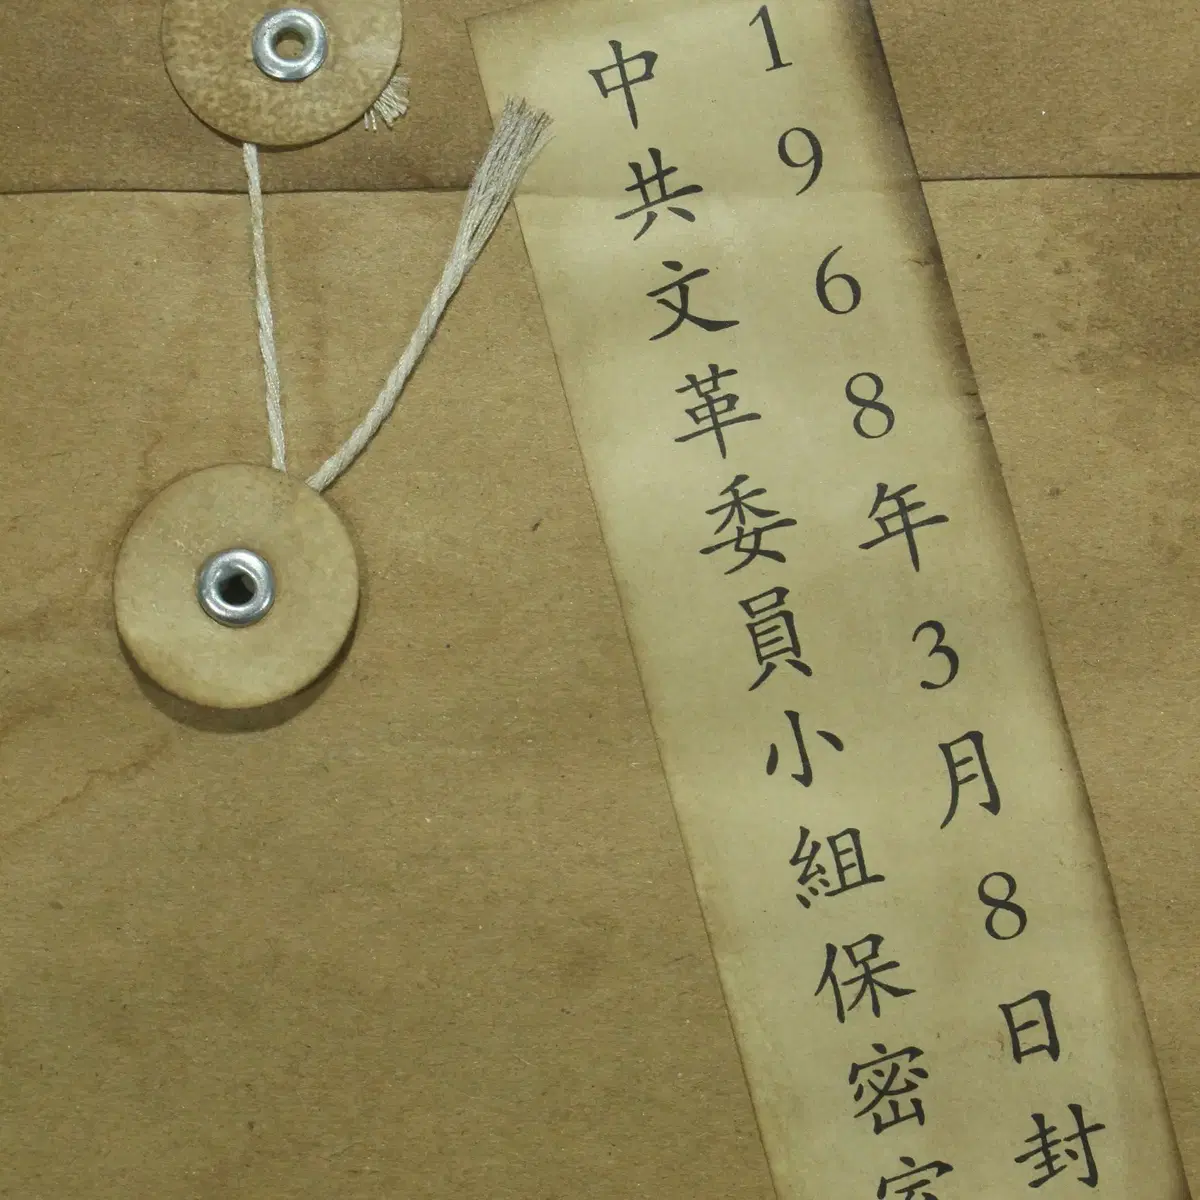 1968年3月8日封
中共文革委員小組保密室